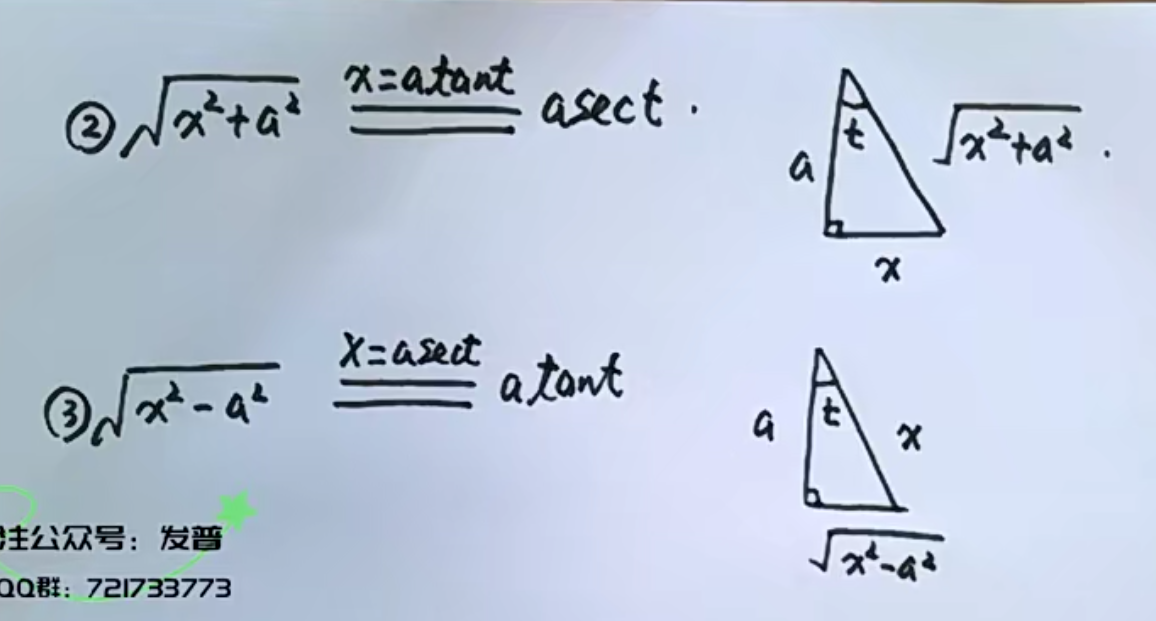 ② √(x²+a²) x=atant asect.
t
a
√(x²+a²).
x
③ √(x²-a²) x=asect atant
t
a
x
√(x²-a²)
注公众号：发普
QQ群：721733773